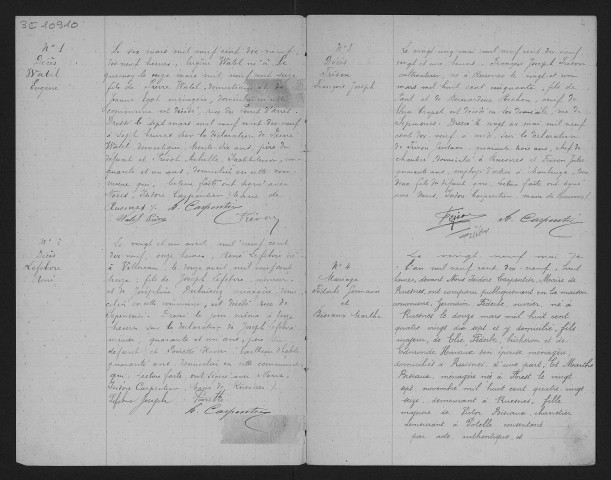 3E 10910
N° 1
Décès
Watel
Eugène
Le six mars mil neuf cent dix neuf
dix neuf heures, Eugène Watel né à Le
Quesnoy le seize mars mil neuf cent seize
fils de Pierre Watel, domestique et de
Jeanne Igot ménagère, domiciliés en cette
commune est décédé, rue du Pont d'Arras.
Dressé le sept mars mil neuf cent dix neuf
à sept heures sur la déclaration de Pierre
Watel domestique, trente six ans, père du
défunt et Achille, Instituteur, cin
quante et un ans, domiciliés en cette com
mune qui, lecture faite ont signé avec
Nous, Isidore Carpentier Maire de
Ruesnes
Watel Pierre
A. Carpentier
N° 2
Décès
Lefebvre
René
Le vingt et un avril mil neuf cent
dix neuf, onze heures, René Lefebvre né
à le onze avril mil neuf cent
treize, fils de Joseph Lefebvre, mineur
et de Joséphine ménagère, domi
ciliés cette commune, est décédé rue de
Dressé le jour même à
heures sur la déclaration de Joseph Lefebvre
mineur, quarante et un ans, père du
défunt et
quarante ans domiciliés en cette commune
qui, lecture faite, ont signé avec Nous
Isidore Carpentier Maire de Ruesnes
Lefebvre Joseph
A. Carpentier
N° 3
Décès
François Joseph
Le vingt cinq mai mil neuf cent dix neuf
vingt et une heures, François Joseph
cultivateur, né à Ruesnes le vingt et un
mars mil huit cent cinquante, fils de
Paul et de Bernardine veuf de
est décédé en son domicile, rue du
Dressé le vingt six mai mil neuf
cent dix neuf à midi, sur la déclaration
de quarante trois ans, chef de
chantier domicilié à Ruesnes et Jules
quarante ans, employé à Maubeuge, tous
deux fils du défunt qui, lecture faite ont signé
avec Nous, Isidore Carpentier maire de Ruesnes
A. Carpentier
N° 4
Mariage
Germain
et
Bisiaux Marthe
Le vingt neuf mai
L'an mil neuf cent dix neuf, huit
heures, devant Nous Isidore Carpentier, Maire de
Ruesnes, ont comparu publiquement en la maison
commune, Germain ouvrier, né à
Ruesnes le douze mars mil huit cent
quatre vingt dix sept et y domicilié, fils
majeur, de Elie bûcheron et de
son épouse ménagère,
domiciliés à Ruesnes, d'une part, Et Marthe
Bisiaux ménagère née à Forest le vingt
sept novembre mil huit cent quatre vingt
seize, demeurant à Ruesnes, fille
majeure de Victor Bisiaux, charretier
demeurant à Potelle consentant
par acte authentique, et